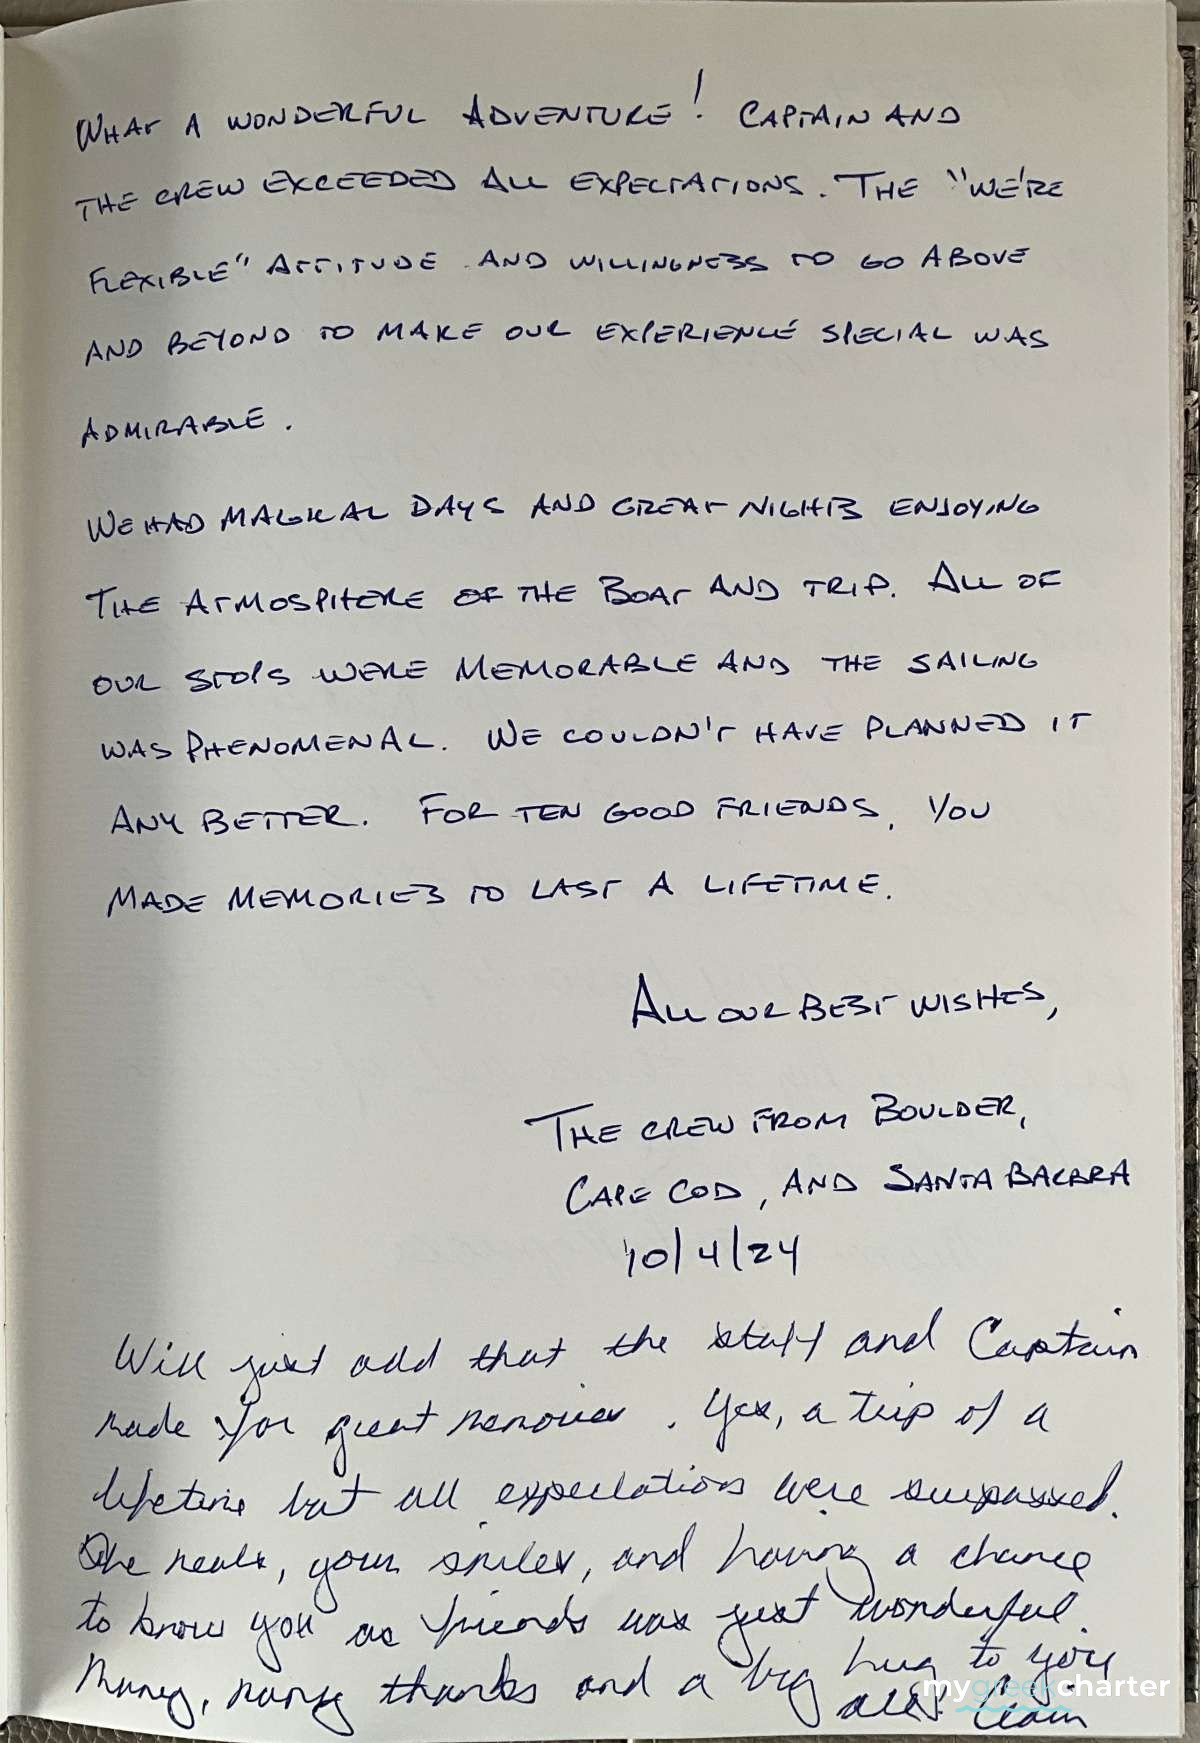 WHAT A WONDERFUL ADVENTURE! CAPTAIN AND
THE CREW EXCEEDED ALL EXPECTATIONS. THE "WE'RE
FLEXIBLE" ATTITUDE AND WILLINGNESS TO GO ABOVE
AND BEYOND TO MAKE OUR EXPERIENCE SPECIAL WAS
ADMIRABLE.
WE HAD MAGICAL DAYS AND GREAT NIGHTS ENJOYING
THE ATMOSPHERE OF THE BOAT AND TRIP. ALL OF
OUR STOPS WERE MEMORABLE AND THE SAILING
WAS PHENOMENAL. WE COULDN'T HAVE PLANNED IT
ANY BETTER. FOR TEN GOOD FRIENDS, YOU
MADE MEMORIES TO LAST A LIFETIME.
ALL OUR BEST WISHES,
THE CREW FROM BOULDER,
CAPE COD, AND SANTA BARBRA
10/4/24
Will just add that the staff and Captain
made for great memories. Yes, a trip of a
lifetime but all expectations were surpassed.
The meals, your smiles, and having a chance
to know you as friends was just wonderful.
Many, many thanks and a big hug to you
all!
mygreekcharter